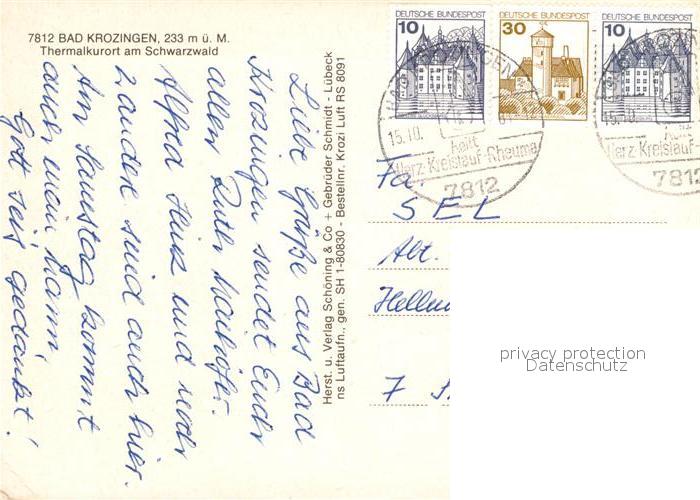 7812 BAD KROZINGEN, 233 m ü. M.
Thermalkurort am Schwarzwald
Liebe Grüße aus Bad
Krozingen sendet Euch
allen Ruth
Alfred Heinz und noch
2 andere sind auch hier.
Am Samstag kommt
auch mein Mann,
Gott sei's gedankt!
Herst. u. Verlag Schöning & Co + Gebrüder Schmidt - Lübeck
ns Luftaufn., gen. SH 1-80830 - Bestellnr. Krozi Luft RS 8091
DEUTSCHE BUNDESPOST
10
DEUTSCHE BUNDESPOST
30
DEUTSCHE BUNDESPOST
10
15.10.
heilt
Herz-Kreislauf-Rheuma
7812
15.10.
heilt
Herz-Kreislauf-
7812
Fa.
SEL
Abt.
7
privacy protection
Datenschutz